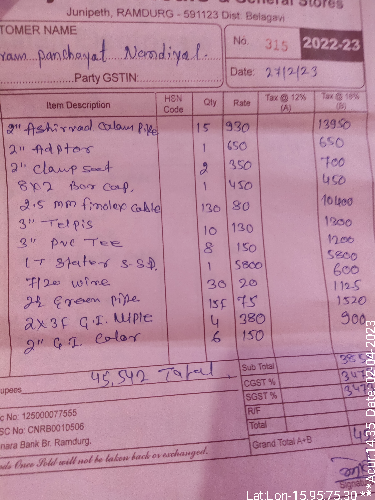 & General Stores
Junipeth, RAMDURG - 591123 Dist: Belagavi
TOMER NAME
No. 315 2022-23
ram panchayat Nandiyal.
Party GSTIN:
Date: 27/2/23
Item Description HSN Code Qty Rate Tax @ 12% (A) Tax @ 18% (B)
2" Ashirvad Colam Pipe 15 930 13950
2" Adptor 1 650 650
2" Clamp set 2 350 700
8x2 Bor cap. 1 450 450
2.5 mm finolex cable 130 80 10400
3" 10 130 1300
3" PVC TEE 8 150 1200
Stator S.S.P. 1 5800 5800
7/20 wire 30 20 600
Green pipe 15f 75 1125
2x3f G.I. Niple 4 380 1520
2" G.I. Color 6 150 900
45,542 Total
Sub Total
CGST %
SGST %
R/F
Total
Grand Total A+B
upees
c No: 125000077555
SC No: CNRB0010506
nara Bank Br. Ramdurg.
ods Once Sold will not be taken back or exchanged.
Signat
Lat:Lon-159575:30***Acur 14:35 Date:02-04-2023